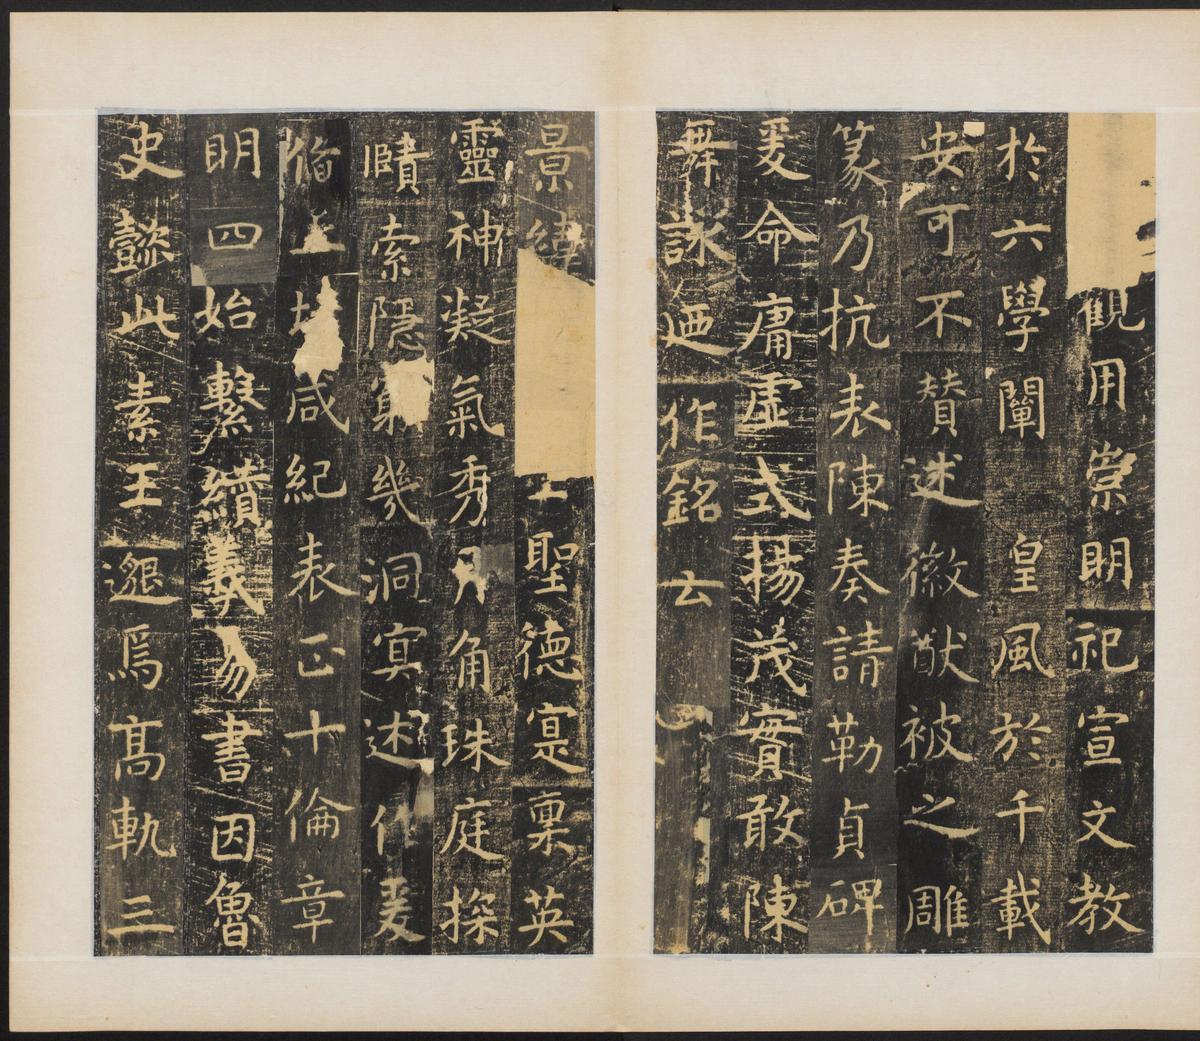 觀用崇明祀宣文教
於六學闡皇風於千載
安可不贊述徽猷被之雕
篆乃抗表陳奏請勒貞碑
爰命庸虛式揚茂實敢陳
舞詠迺作銘云
景緯
聖德寔稟英
靈神凝氣秀月角珠庭探
賾索隱窮幾洞冥述作爰
脩咸紀表正十倫章
明四始繫纘羲易書因魯
史懿此素王邈焉高軌三